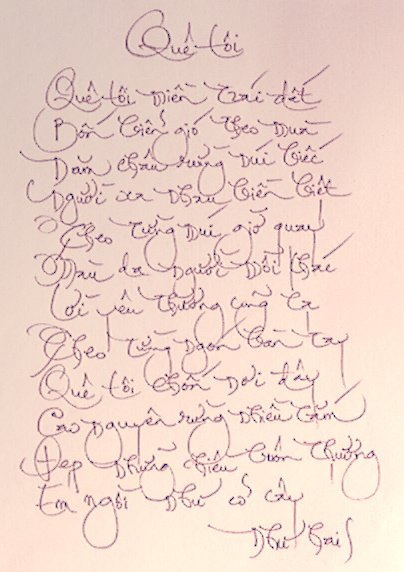 Quê tôi
Quê tôi miền trái đất
Bốn biển gió theo mùa
Năm châu rừng núi biếc
Người xa nhau biền biệt
Theo từng múi giờ quay
Màu da người mỗi khác
Lời yêu thương cũng lạ
Theo từng ngọn bàn tay
Quê tôi chốn nơi đây
Cao nguyên rừng nhiều lắm
Đẹp những chiều buôn thượng
Em ngồi như cỏ cây
Như